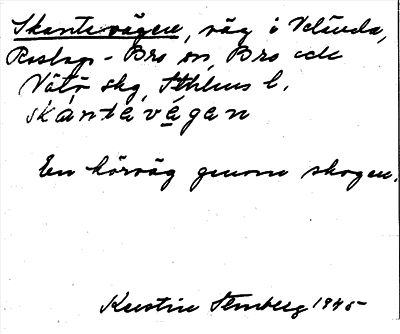 Skantevägen, väg i Vekünda,
Roslags-Bro sn, Bro och
Vätö skg, Sthlms l.
skántevägen
En körväg genom skogen.
Kerstin Stenberg 1945